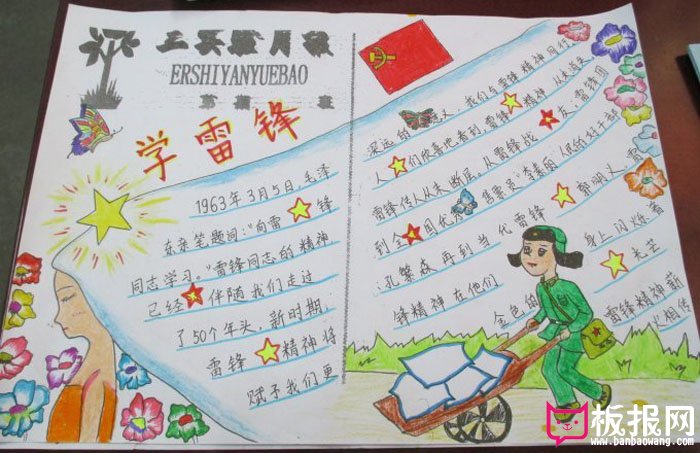 二实验月报
ERSHIYANYUEBAO
第 期 班
学雷锋
1963年3月5日,毛泽
东亲笔题词:“向雷锋
同志学习。”雷锋同志的精神
已经伴随我们走过
了50个年头,新时期,
雷锋精神将
赋予我们更
深远的义,我们与雷锋精神同行
人们欣喜地看到,雷锋精神从未消失
雷锋传人从未断层。从雷锋战友,雷锋团
到全国优秀售票员“李素丽”人民的好干部
孔繁森再到当代雷锋郭明义,雷
锋精神在他们身上闪烁着
金色的光芒
雷锋精神薪
火相传
板报网
www.banbaowang.com